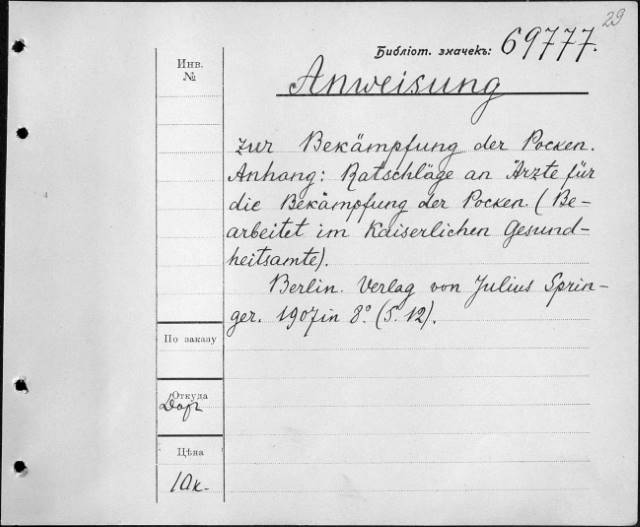 29
Библіот. значекъ: 69777.
Инв.
№
Anweisung
zur Bekämpfung der Pocken.
Anhang: Ratschläge an Ärzte für
die Bekämpfung der Pocken. (Be-
arbeitet im Kaiserlichen Gesund-
heitsamte).
Berlin. Verlag von Julius Sprin-
ger. 1907 in 8° (S. 12).
По заказу
Откуда
Дар
Цѣна
10к.